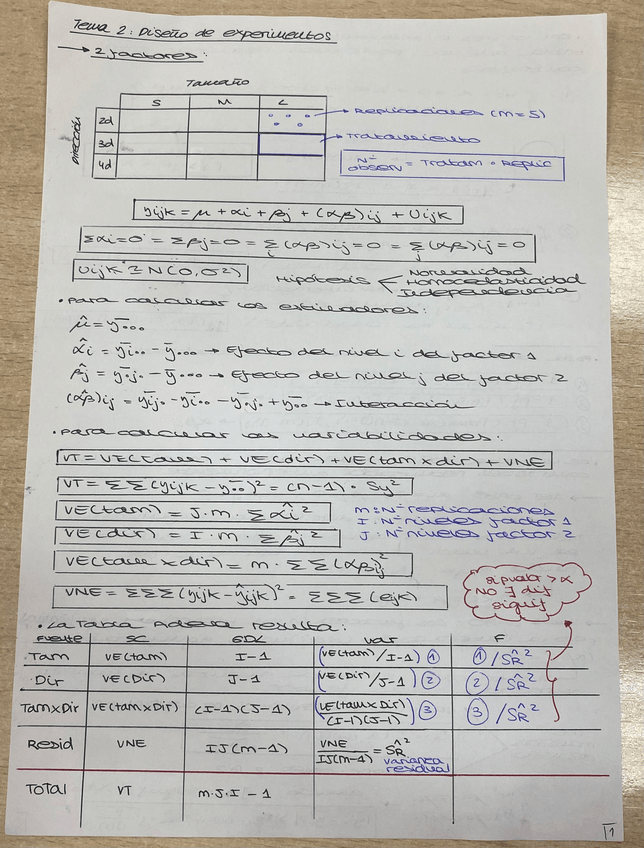 Tema 2: Diseño de experimentos
→ 2 factores:
Tamaño
S M L
Dirección
2d
3d
4d
→ Replicaciones (m=5)
→ Tratamiento
Nº observ = Tratam · Replic
yijk = μ + αi + βj + (αβ)ij + Uijk
Σαi=0 = Σβj=0 = Σi (αβ)ij=0 = Σj (αβ)ij=0
Uijk ≡ N(0,σ²)
Hipótesis < Normalidad
Homocedasticidad
Independencia
· Para calcular los estimadores:
μ̂ = ȳ...
α̂i = ȳi.. - ȳ... → Efecto del nivel i del factor 1
β̂j = ȳ.j. - ȳ... → Efecto del nivel j del factor 2
(αβ̂)ij = ȳij. - ȳi.. - ȳ.j. + ȳ... → Interacción
· Para calcular las variabilidades:
VT = VE(tam) + VE(dir) + VE(tam x dir) + VNE
VT = ΣΣ(yijk - ȳ...)² = (n-1) · Sy²
VE(tam) = J·m· Σα̂i²
VE(dir) = I·m· Σβ̂j²
VE(tam x dir) = m· ΣΣ(αβ̂ij)²
VNE = ΣΣΣ(yijk - ŷijk)² = ΣΣΣ(eijk)
m: Nº replicaciones
I: Nº niveles factor 1
J: Nº niveles factor 2
si pvalor > α
NO ∃ dif
signif
· La Tabla Adeva resulta:
Fuente SC GDL var F
Tam VE(tam) I-1 (VE(tam)/I-1) ① ①/ŜR²
Dir VE(Dir) J-1 (VE(Dir)/J-1) ② ②/ŜR²
TamxDir VE(tamxDir) (I-1)(J-1) (VE(tamxDir)/(I-1)(J-1)) ③ ③/ŜR²
Resid VNE IJ(m-1) VNE/IJ(m-1) = ŜR²
varianza residual
TOTAL VT m·J·I-1
1